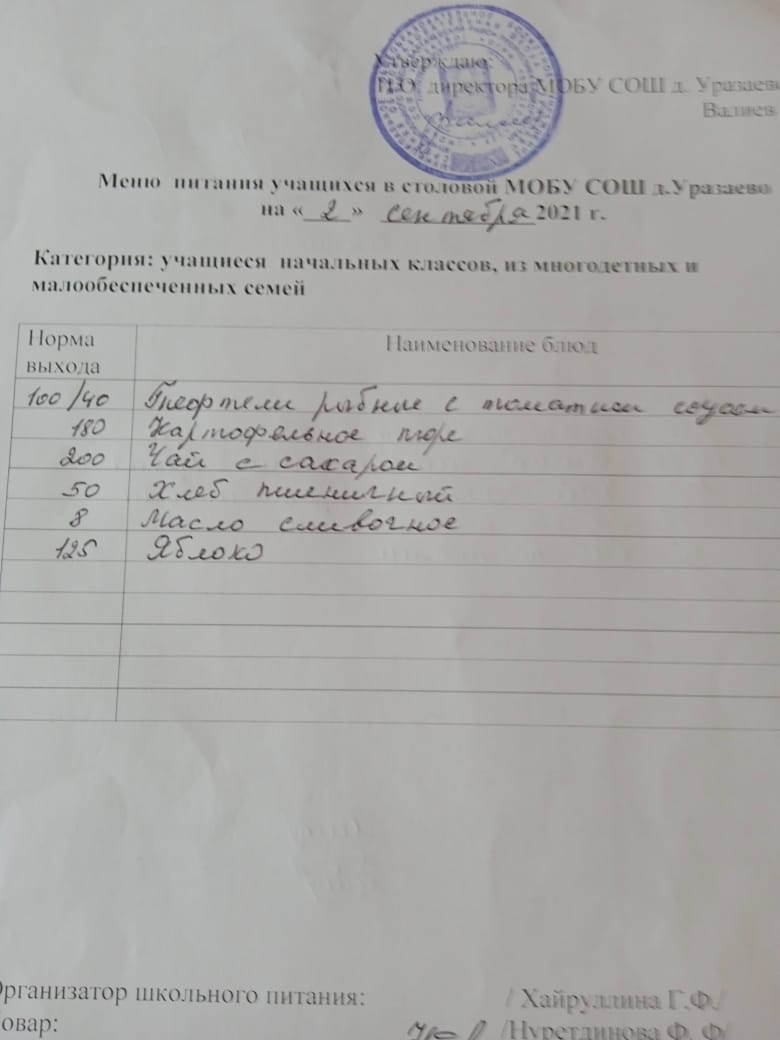 Утверждаю:
И.О. директора МОБУ СОШ д. Уразаево
Валиев
Меню питания учащихся в столовой МОБУ СОШ д.Уразаево
на «2» сентября 2021 г.
Категория: учащиеся начальных классов, из многодетных и
малообеспеченных семей
Норма выхода Наименование блюд
100/40 Тефтели рыбные с томатным соусом
180 Картофельное пюре
200 Чай с сахаром
50 Хлеб пшеничный
8 Масло сливочное
125 Яблоко
Организатор школьного питания: / Хайруллина Г.Ф./
Повар: /Нуретдинова Ф. Ф/